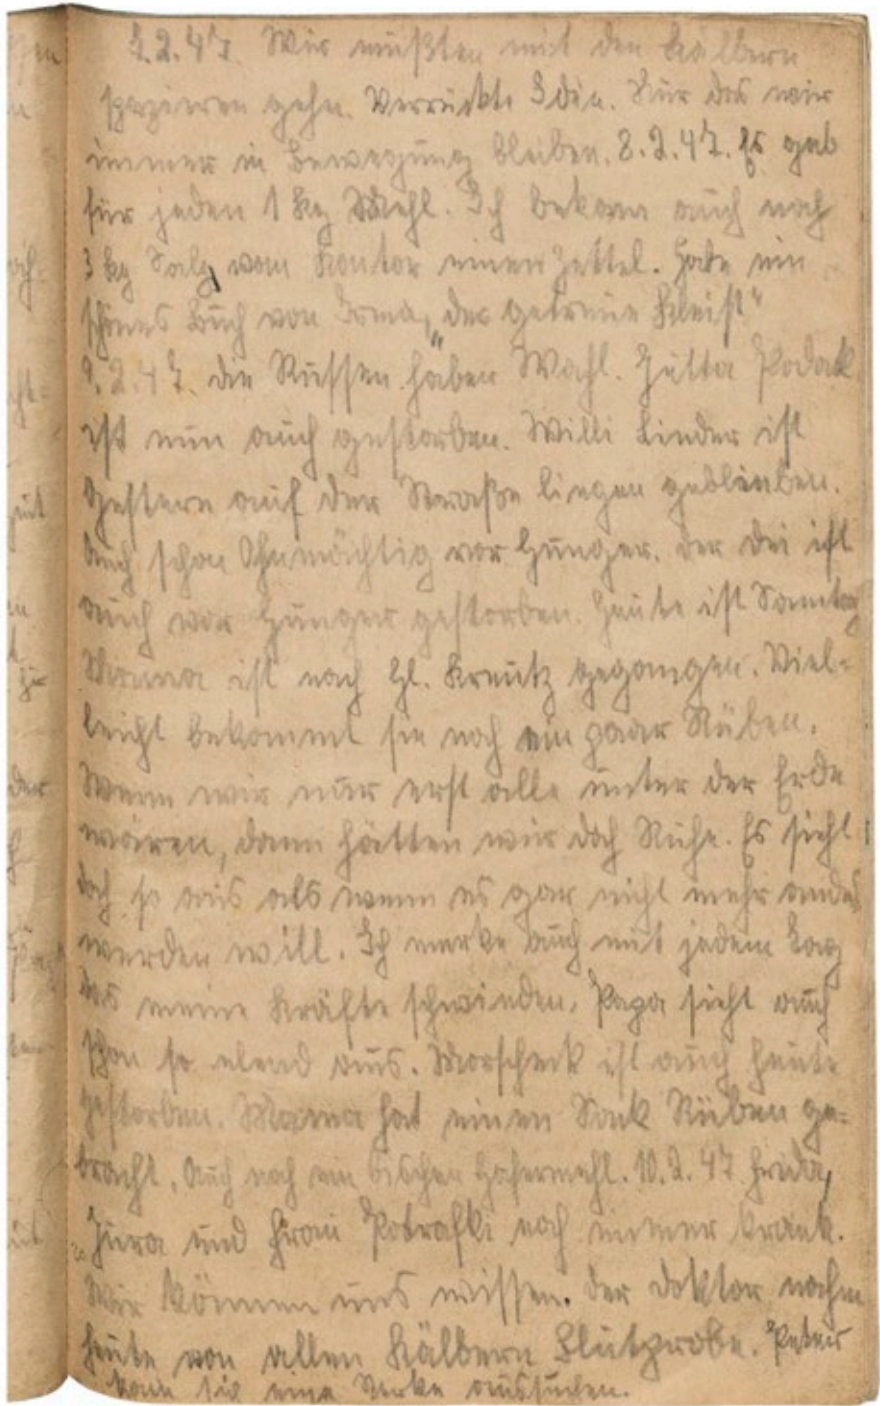 7.2.47. Wir mußten mit den Kälbern
spazieren gehn. Verrückte Idee. Nur das wir
immer in Bewegung bleiben. 8.2.47. Es gab
für jeden 1 kg Mehl. Ich bekam auch noch
3 kg Salz vom Kontor einen Zettel. Habe ein
schönes Buch von Irma, „der getreue Kleist"
9.2.47. die Russen haben Wahl. Jutta Podack
ist nun auch gestorben. Willi Linder ist
gestern auf der Straße liegen geblieben.
Auch schon Ohnmächtig vor Hunger. Der ist
auch vor Hunger gestorben. Heute ist Sonntag
Mama ist nach Hl. Kreutz gegangen. Viel-
leicht bekommt sie noch ein paar Rüben.
Wenn wir nur erst alle unter der Erde
wären, dann hätten wir doch Ruhe. Es sieht
doch so aus als wenn es gar nicht mehr anders
werden will. Ich merke auch mit jedem Tag
das meine Kräfte schwinden. Papa sieht auch
schon so elend aus. Morscheck ist auch heute
gestorben. Mama hat einen Sack Rüben ge-
bracht. Auch noch ein bischen Hafermehl. 10.2.47 Frida,
und Frau Potrafki noch immer krank.
Wir können uns wissen. Der Doktor nahm
heute von allen Kälbern Blutprobe. Peters
kann sich eine Sterke aussuchen.